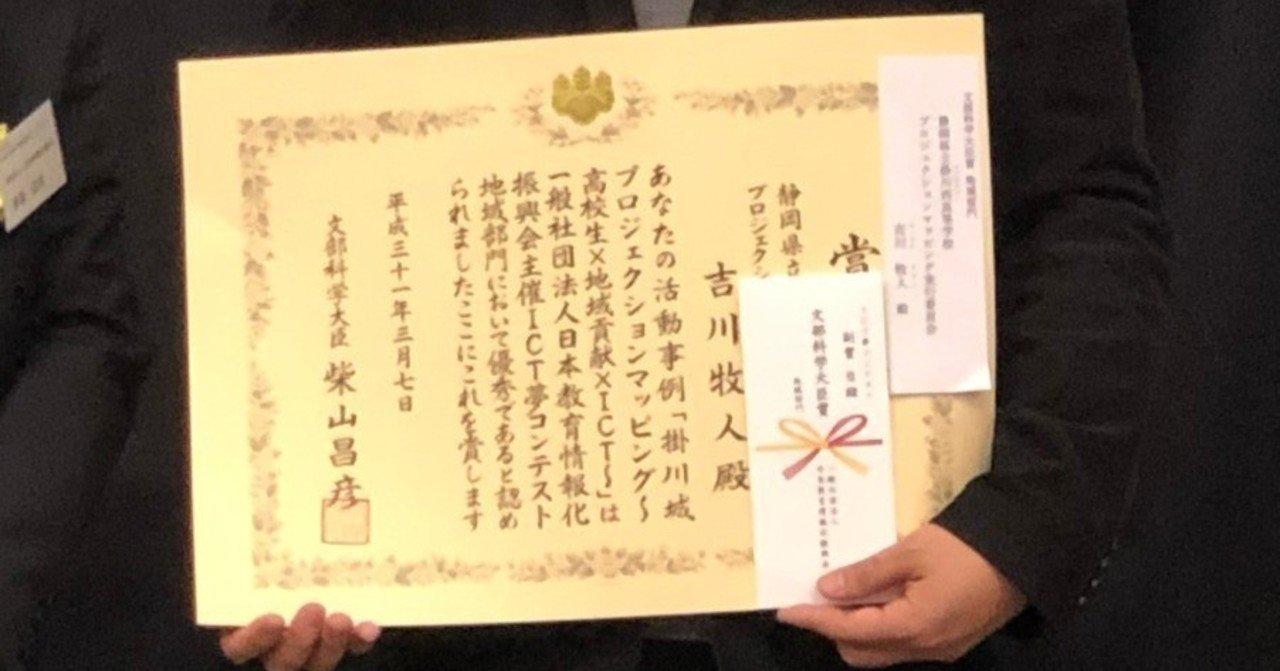 文部科学大臣賞 地域部門
静岡県立掛川西高等学校
プロジェクションマッピング実行委員会
吉川 牧人 殿
賞
静岡県立
プロジェクシ
吉川牧人殿
あなたの活動事例「掛川城
プロジェクションマッピング〜
高校生×地域貢献×ICT〜」は
一般社団法人日本教育情報化
振興会主催ICT夢コンテスト
地域部門において優秀であると認め
られましたここにこれを賞します
平成三十一年三月七日
文部科学大臣 柴山昌彦
副賞 目録
文部科学大臣賞
地域部門
一般社団法人
日本教育情報化振興会